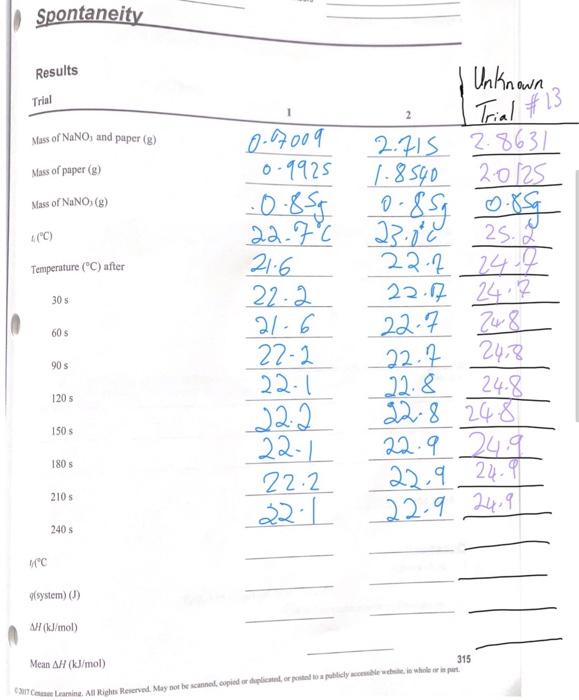 Spontaneity
Results
Unknown
Trial 1 2 Trial #13
Mass of NaNO₃ and paper (g) 0.07009 2.715 2.8631
Mass of paper (g) 0.9925 1.8540 2.0125
Mass of NaNO₃ (g) 0.85g 0.85g 0.85g
tᵢ(°C) 22.7°C 23.0°C 25.2
Temperature (°C) after 21.6 22.7 24.7
30 s 22.2 22.7 24.7
60 s 21.6 22.7 24.8
90 s 22.2 22.7 24.8
120 s 22.1 22.8 24.8
150 s 22.2 22.8 24.8
180 s 22.1 22.9 24.9
210 s 22.2 22.9 24.9
240 s 22.1 22.9 24.9
q(system) (J)
ΔH (kJ/mol)
Mean ΔH (kJ/mol)
315
©2017 Cengage Learning. All Rights Reserved. May not be scanned, copied or duplicated, or posted to a publicly accessible website, in whole or in part.